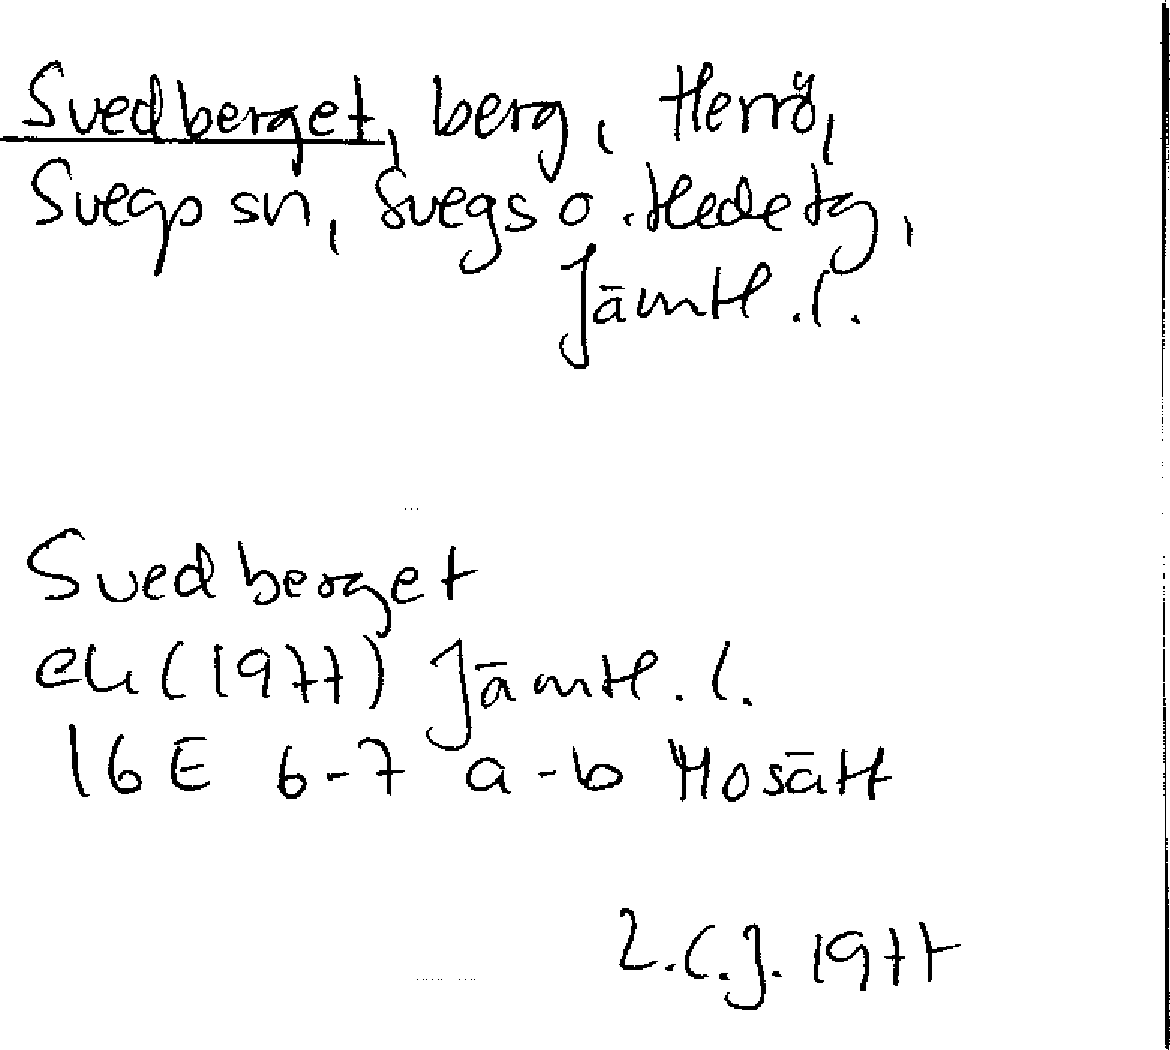 Svedberget, berg, Herrö,
Svegs sn, Svegs o. Hede tg,
Jämtl. l.
Svedberget
ek (1977) Jämtl. l.
16E 6-7 a-b Mosätt
L.C.J. 1977